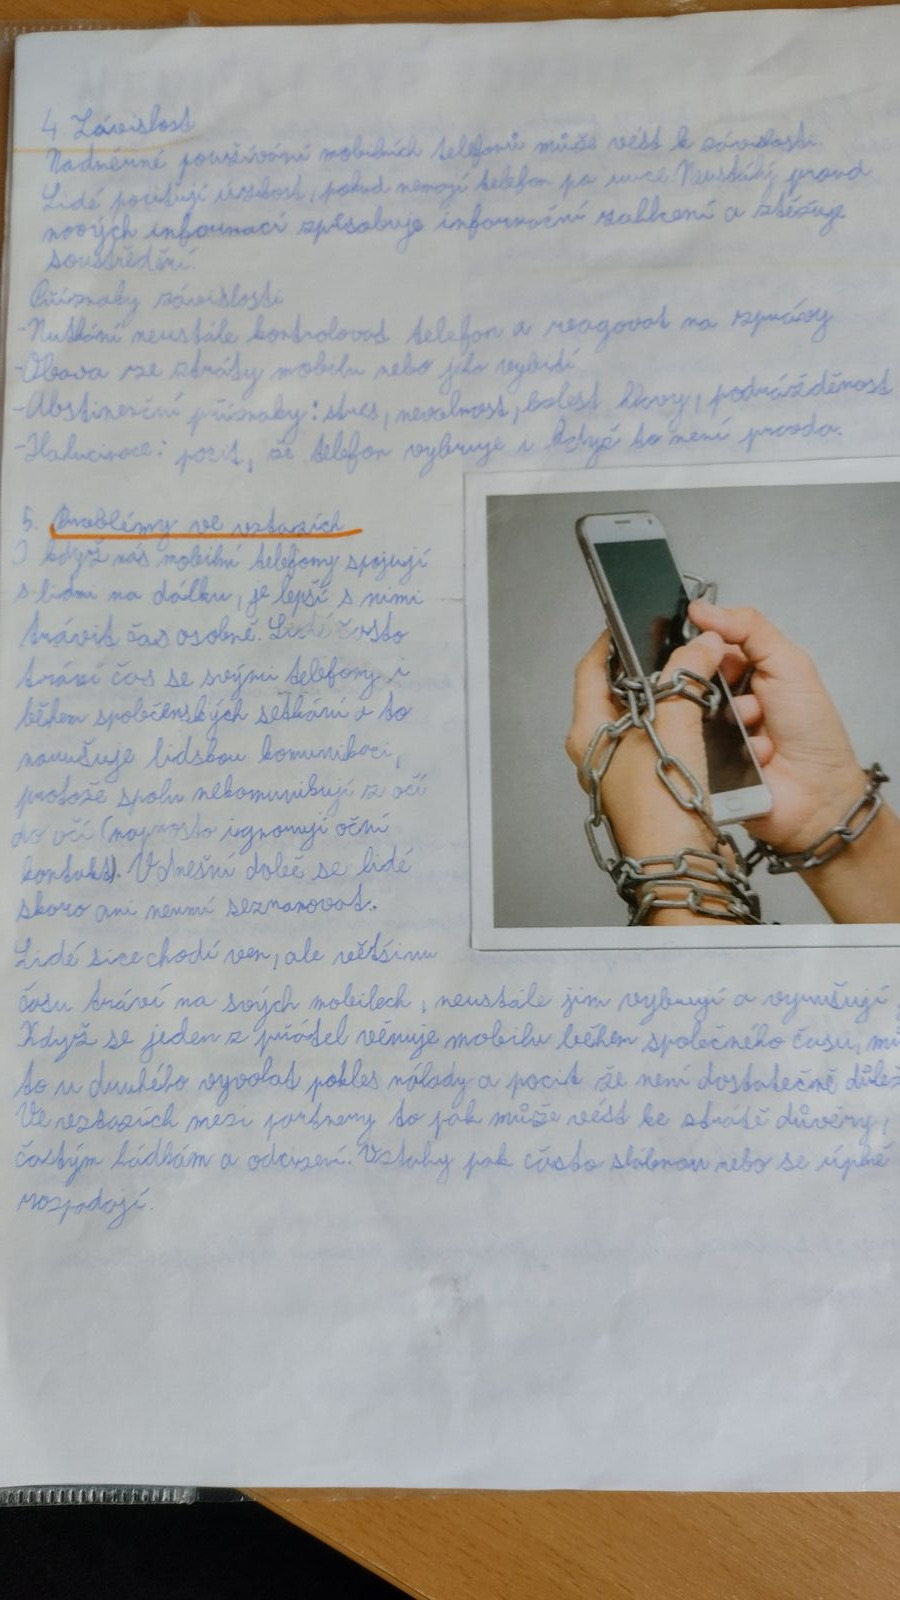 4. Závislost
Nadměrné používání mobilních telefonů může vést k závislosti.
Lidé pociťují úzkost, pokud nemají telefon po ruce. Neustálý proud
nových informací způsobuje informační zahlcení a ztěžuje
soustředění.
Příznaky závislosti
-Nutkání neustále kontrolovat telefon a reagovat na zprávy
-Obava ze ztráty mobilu nebo jeho vybití
-Abstinenční příznaky: stres, nevolnost, bolest hlavy, podrážděnost
-Halucinace: pocit, že telefon vybruje i když to není pravda.
5. Problémy ve vztazích
I když nás mobilní telefony spojují
s lidmi na dálku, je lepší s nimi
trávit čas osobně. Lidé často
tráví čas se svými telefony i
během společenských setkání a to
narušuje lidskou komunikaci,
protože spolu nekomunikují z očí
do očí (naprosto ignorují oční
kontakt). V dnešní době se lidé
skoro ani neumí seznamovat.
Lidé sice chodí ven, ale většinu
času tráví na svých mobilech, neustále jim vybrují a vyrušují
Když se jeden z přátel věnuje mobilu během společného času,
to u druhého vyvolat pokles nálady a pocit že není dostatečně
Ve vztazích mezi partnery to pak může vést ke ztrátě důvěry,
častým hádkám a odcizení. Vztahy pak často slábnou nebo se úplně
rozpadají.